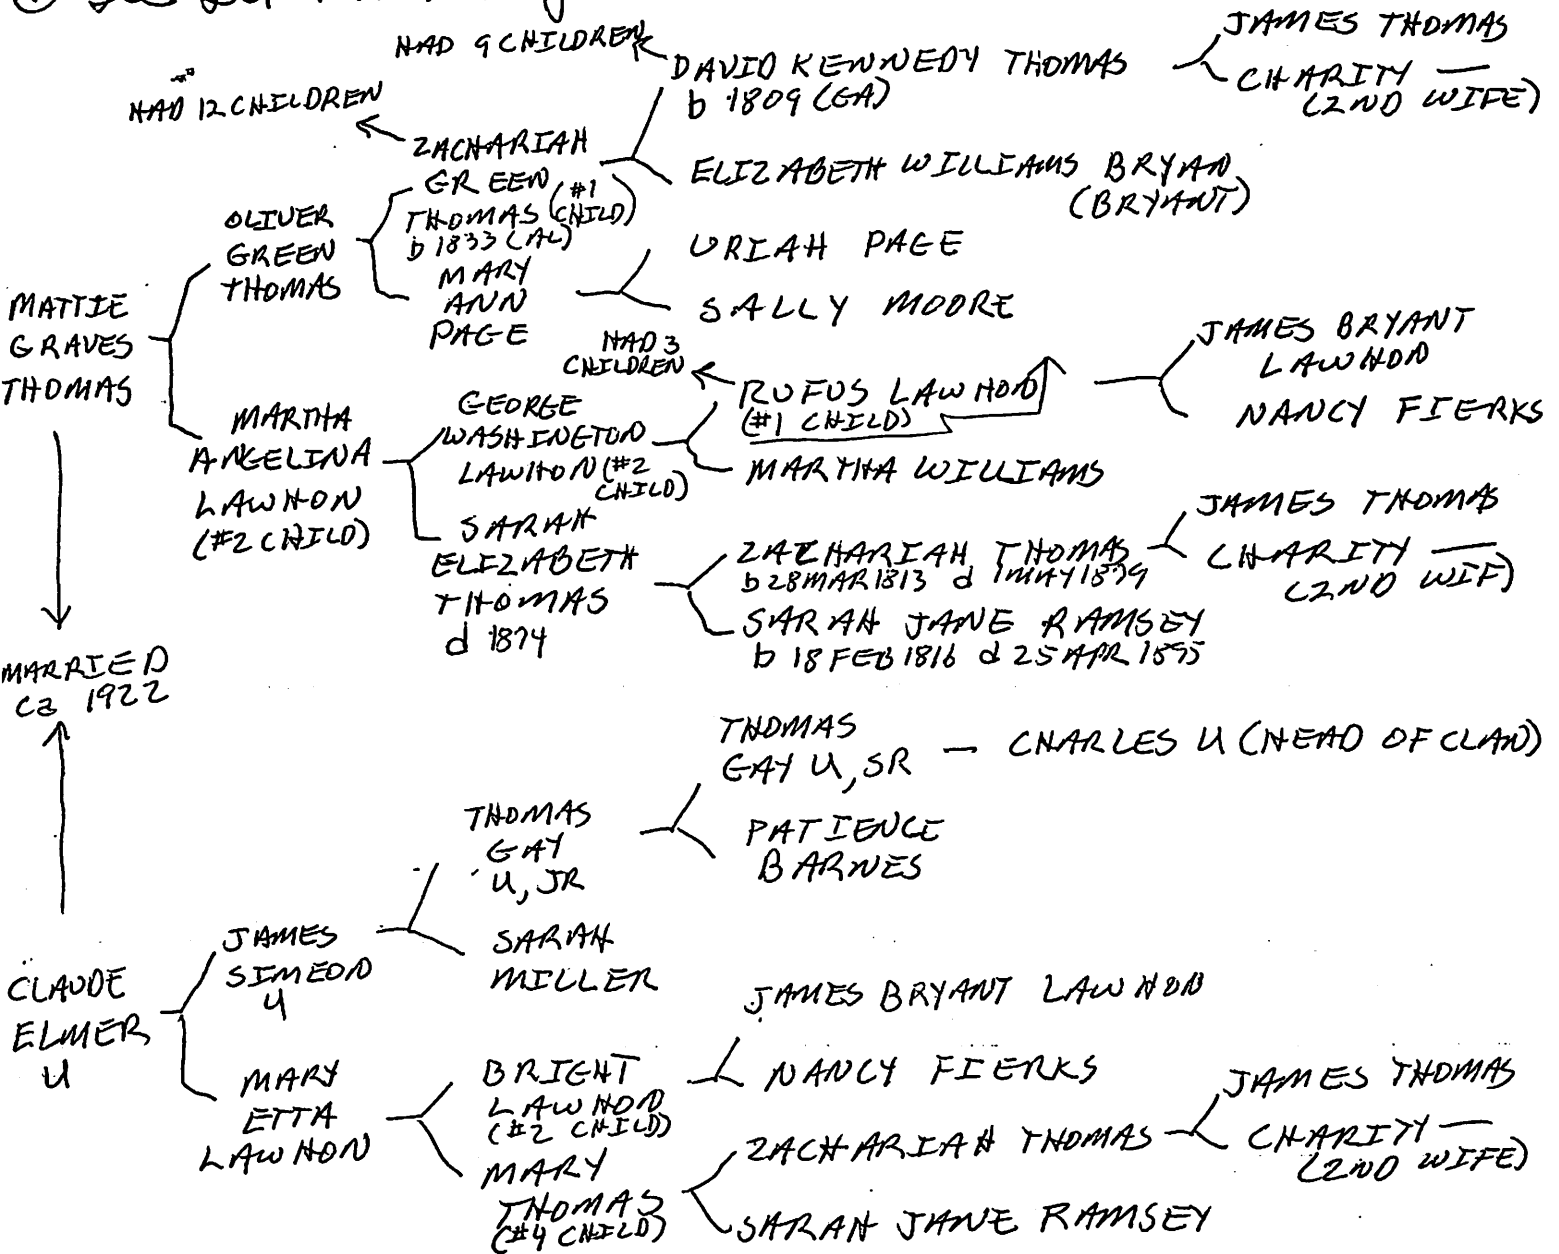 HAD 9 CHILDREN
DAVID KENNEDY THOMAS
b 1809 (GA)
JAMES THOMAS
CHARITY —
(2ND WIFE)
HAD 12 CHILDREN
ZACHARIAH
GREEN
THOMAS (#1 CHILD)
b 1833 (AL)
ELIZABETH WILLIAMS BRYAN
(BRYANT)
OLIVER
GREEN
THOMAS
MARY
ANN
PAGE
URIAH PAGE
SALLY MOORE
MATTIE
GRAVES
THOMAS
HAD 3
CHILDREN
RUFUS LAWHON
(#1 CHILD)
JAMES BRYANT
LAWHON
NANCY FIERKS
MARTHA
ANGELINA
LAWHON
(#2 CHILD)
GEORGE
WASHINGTON
LAWHON (#2
CHILD)
MARTHA WILLIAMS
SARAH
ELIZABETH
THOMAS
d 1874
ZACHARIAH THOMAS
b 28 MAR 1813 d 1 MAY 1879
JAMES THOMAS
CHARITY —
(2ND WIF)
SARAH JANE RAMSEY
b 18 FEB 1816 d 25 APR 1895
MARRIED
ca 1922
THOMAS
GAY U, SR — CHARLES U (HEAD OF CLAN)
THOMAS
GAY
U, JR
PATIENCE
BARNES
JAMES
SIMEON
U
SARAH
MILLER
CLAUDE
ELMER
U
JAMES BRYANT LAWHON
MARY
ETTA
LAWHON
BRIGHT
LAWHON
(#2 CHILD)
NANCY FIERKS
MARY
THOMAS
(#4 CHILD)
ZACHARIAH THOMAS
JAMES THOMAS
CHARITY —
(2ND WIFE)
SARAH JANE RAMSEY